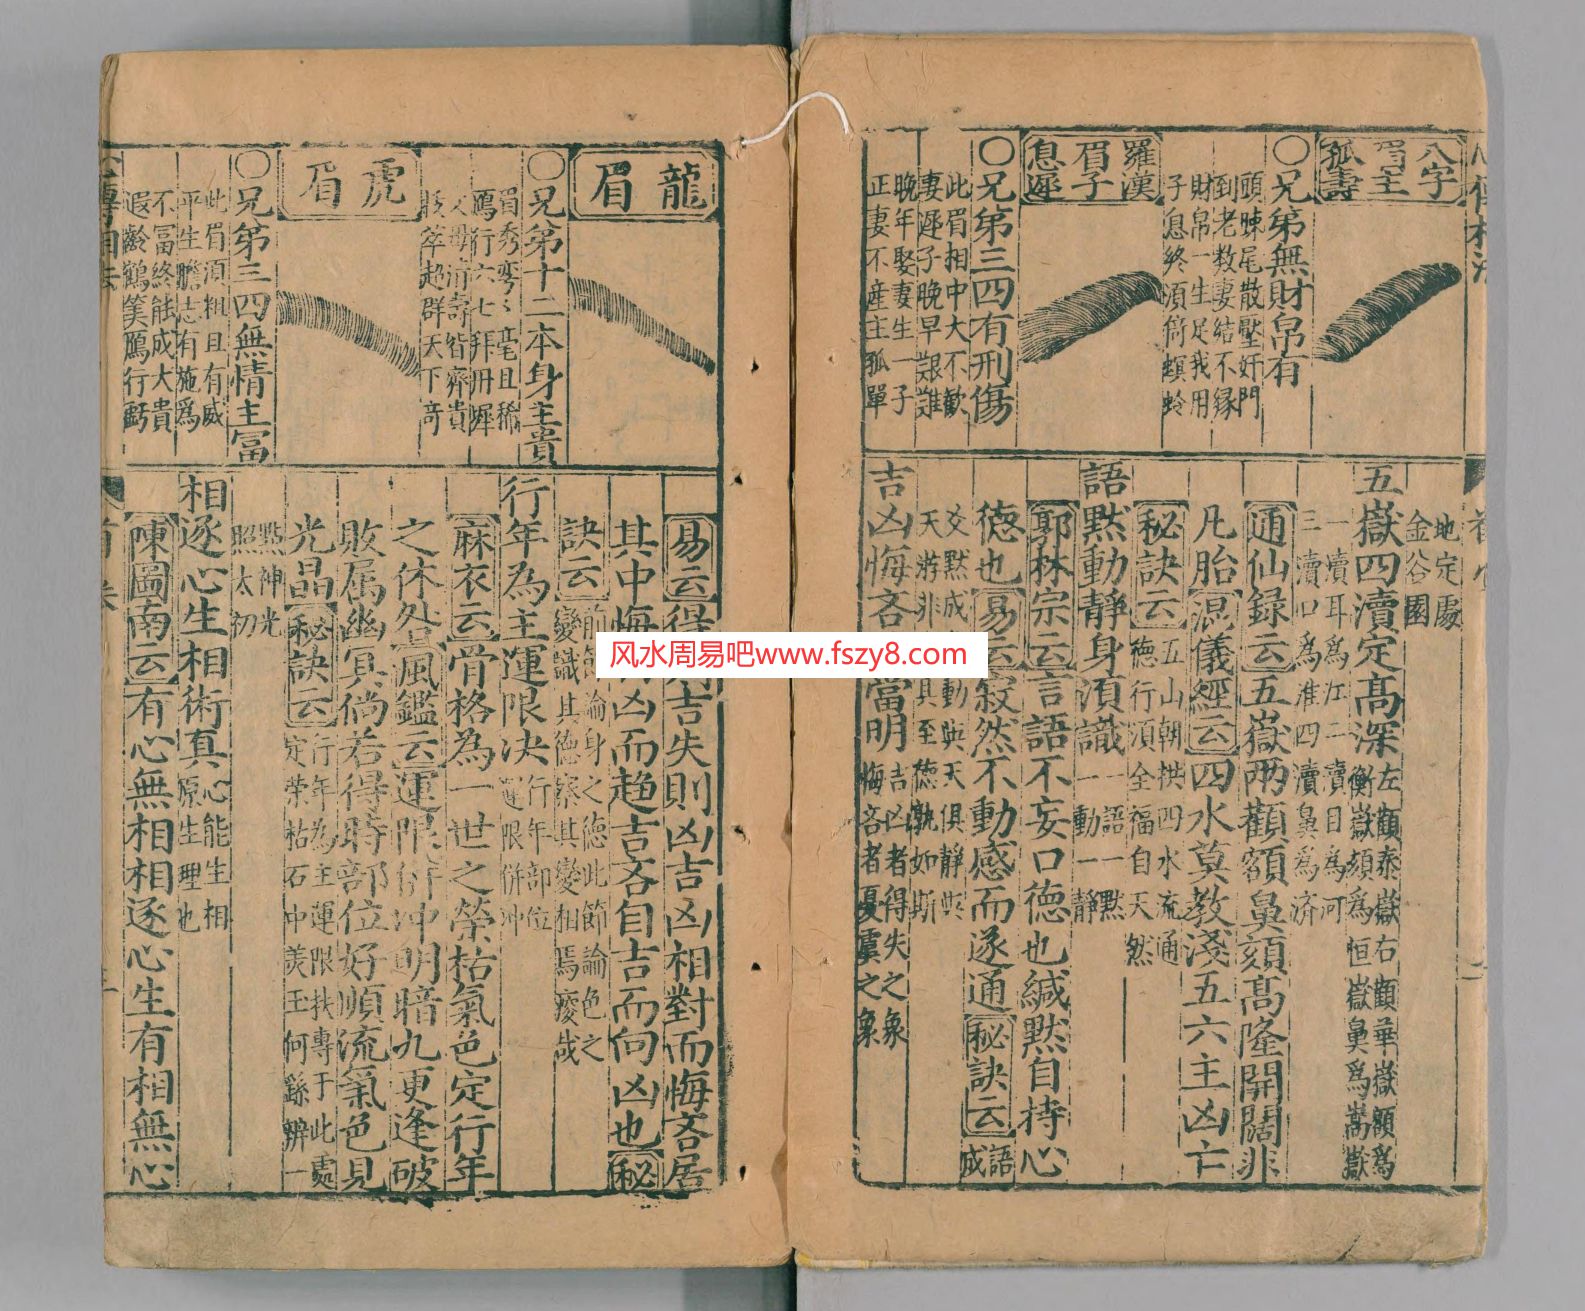 八字
眉主
孤壽
〇兄第無財帛有
頭踈尾散壓奸門
到老数妻結不縁
財帛一生足我用
子息終須倚螟蛉
羅漢
眉子
息遲
〇兄第三四有刑傷
此眉相中大不歡
妻遲子晚早艱難
晚年娶妻生一子
正妻不産主孤單
地定處
金谷園
五嶽四瀆定高深
左顴泰嶽右顴華嶽額爲
衡嶽頦爲恒嶽鼻爲嵩嶽
一瀆耳爲江二瀆目爲河
三瀆口爲淮四瀆鼻爲济
通仙録云五嶽两顴額鼻頦高隆開闊非
凡胎混儀經云四水莫教淺五六主凶亡
秘訣云
五山朝拱四水流通
德行須全福自天然
語默動靜身須識
一語一默
一動一靜
郭林宗云言語不妄口德也緘默自持心
德也易云寂然不動感而遂通秘訣云
語
成
爻默成
動與天俱靜與
天游非
具至德孰如斯
吉凶悔吝
當明
吉凶者得失之象
悔吝者憂虞之象
龍眉
〇兄第十二本身主貴
眉秀弯〻毫且稀
鴈行六七拜丹墀
父母清壽皆齊貴
䟦萃超群天下奇
虎眉
〇兄第三四無情主冨
此眉須粗且有威
平生膽志有施爲
不冨終能成大貴
遐齡鶴筭鴈行虧
易云得
吉失則凶吉凶相對而悔吝居
其中悔
凶而趋吉吝自吉而向凶也秘
訣云
前
論身之德此節論色之
變識其德察其變相焉廋哉
行年為主運限决
行年部位
運限併沖
麻衣云骨格為一世之榮枯氣色定行年
之休咎風鑑云運限併冲明暗九更逢破
敗属幽冥倘若得時部位好順流氣色見
光晶秘訣云
行年為主運限扶專于此處
定荣枯石中美玉何繇辨一
點神光
照太初
相逐心生相術真
心能生相
原生理也
陳圖南云有心無相相逐心生有相無心
風水周易吧www.fszy8.com